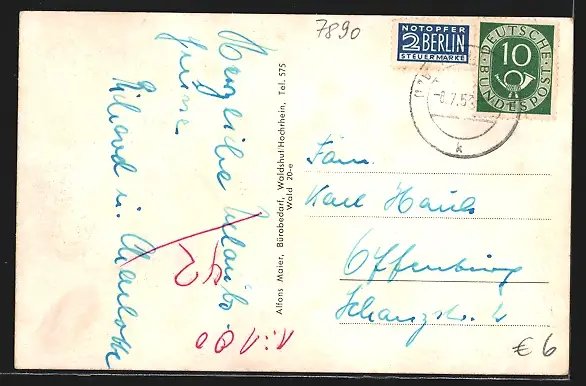 7890
NOTOPFER
2 BERLIN
STEUERMARKE
DEUTSCHE
10
BUNDESPOST
-8.7.53
k
Herzliche Urlaubs-
grüsse
Richard u. Charlotte
Alfons Maier, Bürobedarf, Waldshut/Hochrhein, Tel. 575
Wald 20-e
Fam.
Karl Hauck
Offenburg
Schanzstr. 4
1:100
€ 6